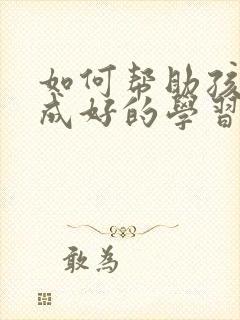 如何帮助孩
成好的學習
敢為